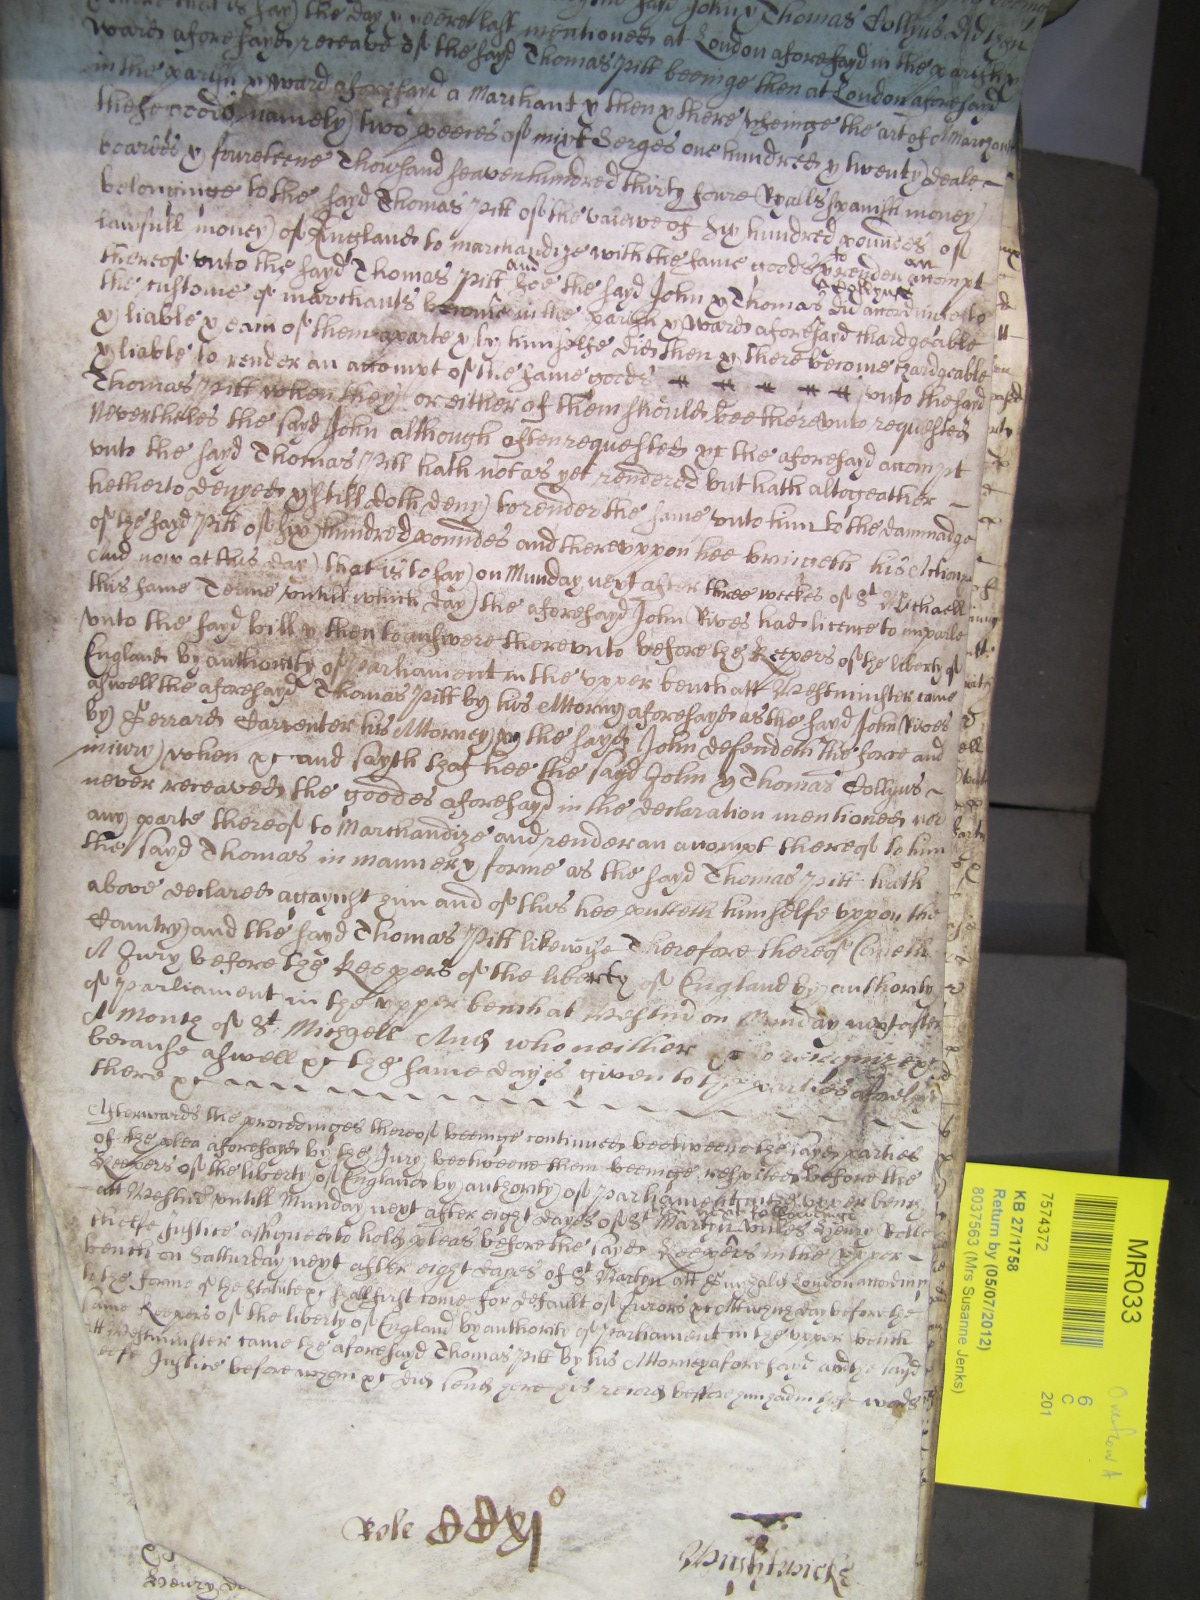 (there that is to say) the day & yeere last mentioned the sayd John & Thomas Collyns did then
ward aforesayd receave of the sayd Thomas Pitt beeinge then at London aforesayd
in the parish & ward aforesayd a Marchant & then & there useinge the art of a Marchant
these goods (namely) two peeces of mixt Serges one hundred & twenty deale
boardes & fourteene thowsand seaven hundred thirty foure Ryalls spanish money
belonginge to the sayd Thomas Pitt of the valewe of Six hundred poundes of
lawfull money of England to marchandize with the same goods & to render an accompt
thereof unto the sayd Thomas Pitt and soe the sayd John & Thomas Collyns did accordinge to
the custome of marchants become in the parish & ward aforesayd chardgeable
& liable & each of them aparte & by himselfe did then & there become chardgeable
& liable to render an accompt of the same goods unto the sayd
Thomas Pitt when they or either of them should bee thereunto requested
Nevertheles the sayd John although often requested &c the aforesayd accompt
unto the sayd Thomas Pitt hath not as yet rendered but hath altogeather
hetherto denyed & still doth deny to render the same unto him to the dammadge
of the sayd Pitt of six hundred poundes and thereuppon hee bringeth his Action
And now at this day (that is to say) on Munday next after three weekes of St Michaell
this same Terme untill which day the aforesayd John Rives had licence to imparle
unto the sayd bill & then to answere thereunto before the Keepers of the liberty of
England by authority of Parliament in the upper bench att Westminster came
aswell the aforesayd Thomas Pitt by his Attorny aforesayd as the sayd John Rives
by Ferrard Carpenter his Attorney & the sayd John defendeth the force and
iniury when &c and sayth that hee the sayd John & Thomas Collyns
never receaved the goodes aforesayd in the declaration mentioned nor
any parte thereof to Marchandize and render an accompt thereof to him
the sayd Thomas in manner & forme as the sayd Thomas Pitt hath
above declared agaynst him and of this hee putteth himselfe uppon the
Countrey and the sayd Thomas Pitt likewise Therefore thereof Cometh
A Jury before the Keepers of the liberty of England by authority
of Parliament in the upper bench at Westmr on Munday next after
A Month of St. Michaell And who neither &c to recognize &c
because aswell &c the same day is given to the parties aforesayd
there &c
Afterwards the proceedinges thereof beeinge continued beetweene the sayd parties
of the plea aforesayd by the Jury beetweene them beeinge respited before the
Keepers of the liberty of England by authority of Parliament in the upper bench
att Westmr untill Munday next after eight dayes of St Martyn unles Henry Rolle
cheife Justice assigned to hold pleas before the sayd Keepers in the upper
bench on Satturday next after eight dayes of St Martyn att Guyhald London according
to the forme of the statute &c shall first come for default of Jurors &c Att which day before the
same Keepers of the liberty of England by authority of Parliament in the upper bench
att Westminster came the aforesayd Thomas Pitt by his Attorney aforesayd and the sayd
cheife Justice before whom &c did send here his record before him had in these words
Role CCxjo
Wightwicke
Henry
MR033
7574372
KB 27/1758
Return by (05/07/2012)
8037563 (Mrs Susanne Jenks)
6
C
201
Overflow A